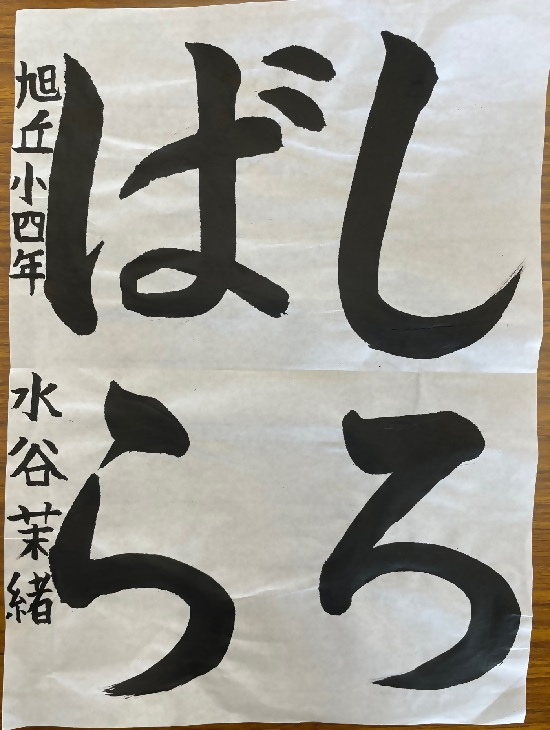 しろ
ばら
旭丘小四年 水谷茉緒